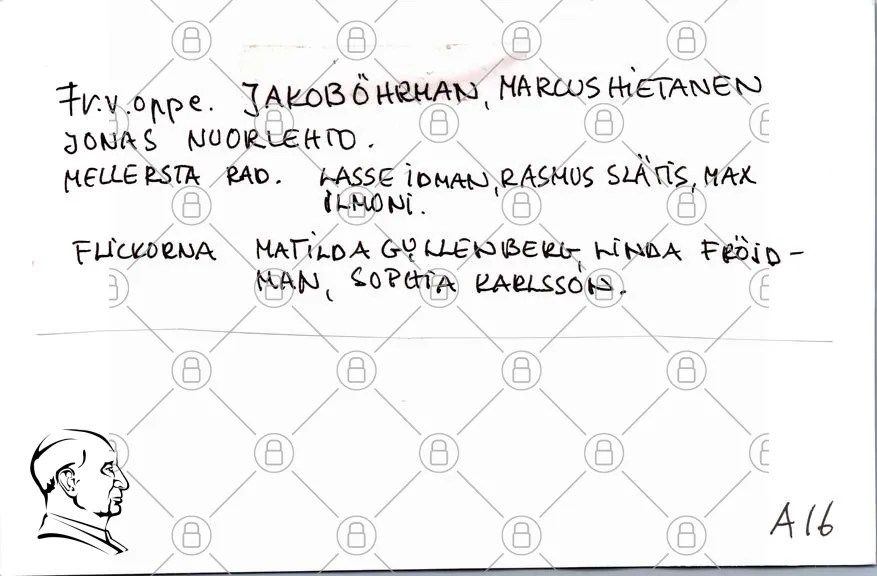 Fr.v.oppe. JAKOB ÖHRMAN, MARCUS HIETANEN
JONAS NUORLEHTO.
MELLERSTA RAD. LASSE IDMAN, RASMUS SLÄTIS, MAX
ILMONI.
FLICKORNA MATILDA GYLLENBERG, LINDA FRÖJD-
MAN, SOPHIA KARLSSON.
A16